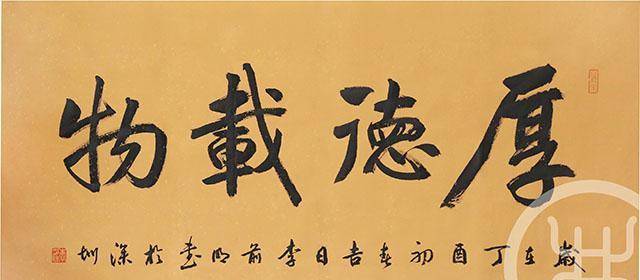 厚德載物
歲在丁酉初春吉日李前明書於深圳